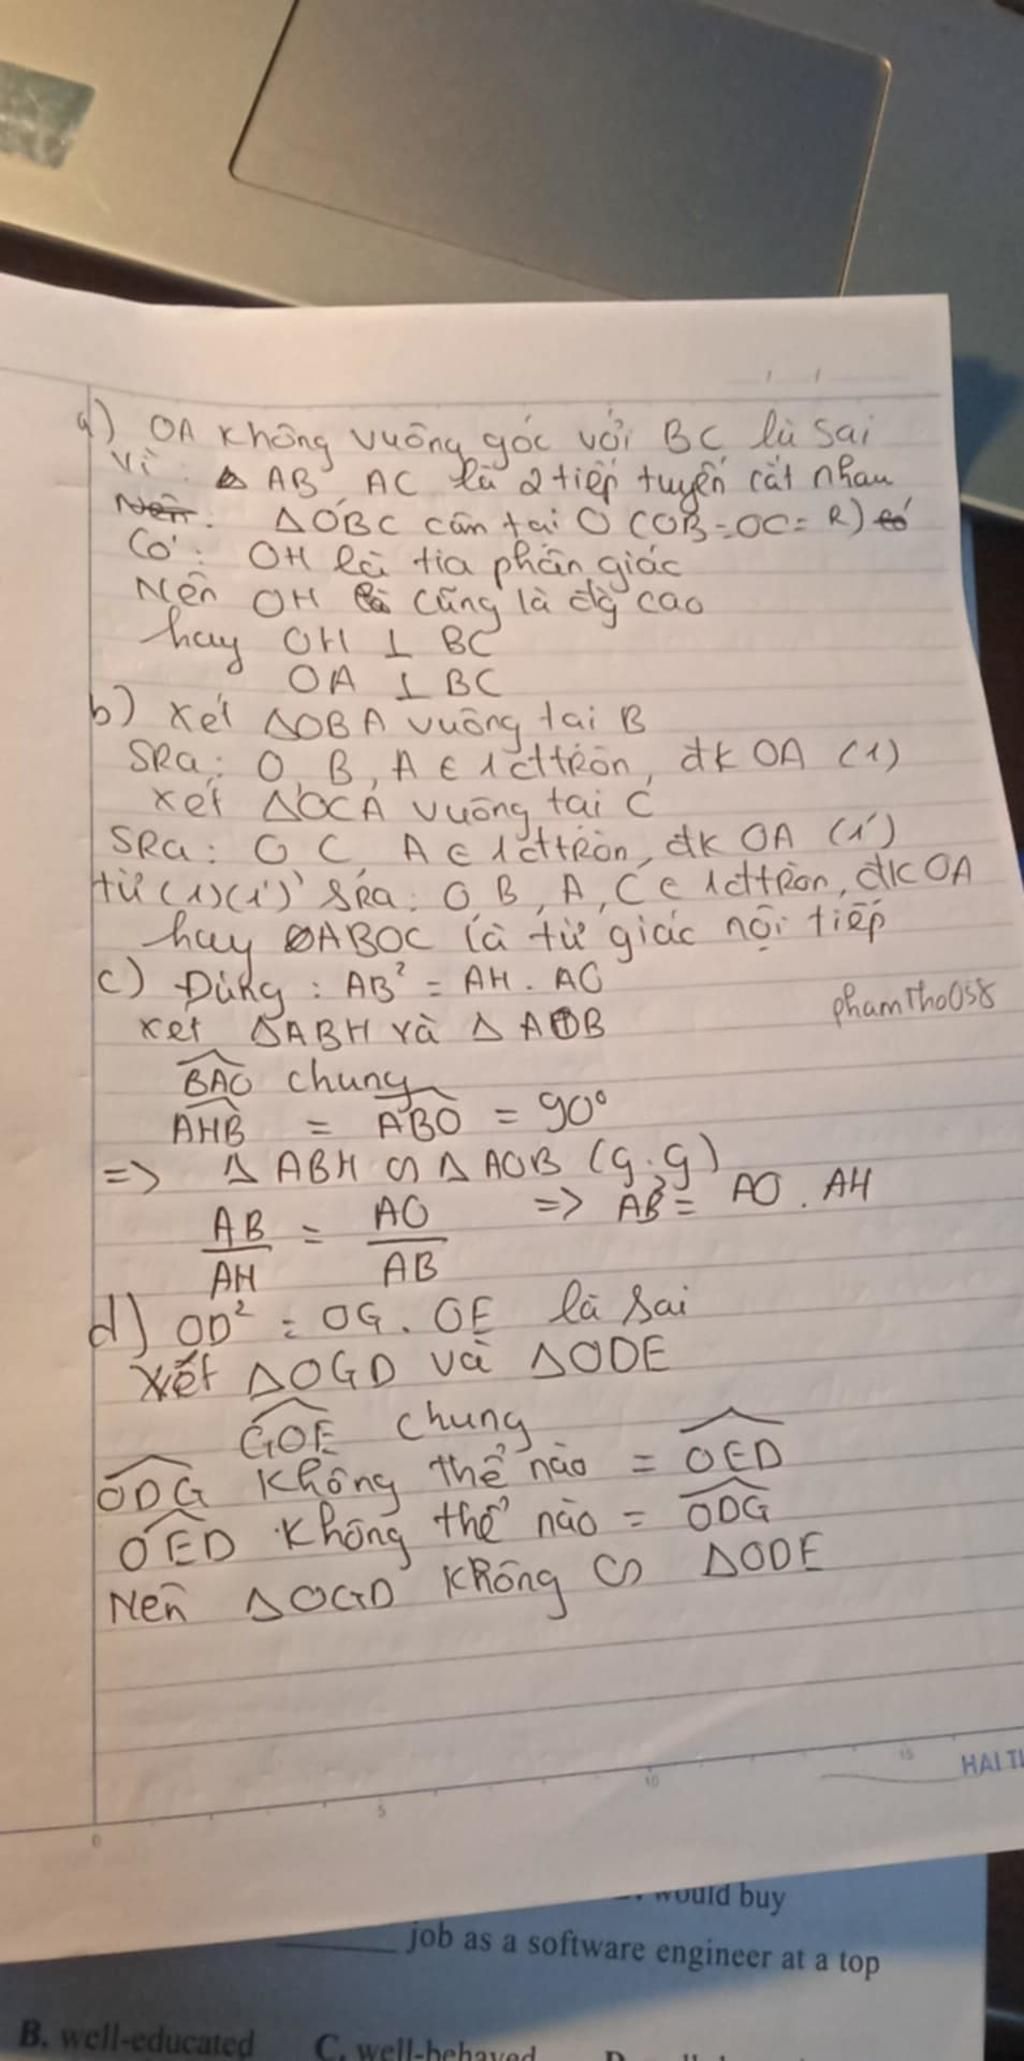 a) OA không vuông góc với BC là sai
Vì: AB, AC là 2 tiếp tuyến cắt nhau
Nên: ΔOBC cân tại O (OB=OC=R) có
Có: OH là tia phân giác
Nên OH là cũng là đg cao
hay OH ⊥ BC
OA ⊥ BC
b) Xét ΔOBA vuông tại B
SRa: O, B, A ∈ 1 đttròn, đk OA (1)
Xét ΔOCA vuông tại C
SRa: O C, A ∈ 1 đttròn, đk OA (1')
từ (1)(1') SRa: O B, A, C ∈ 1 đttròn, đk OA
hay ABOC là tứ giác nội tiếp
c) Đúng: AB² = AH . AO
phamTho058
xét ΔABH và ΔAOB
BAO chung
AHB = ABO = 90°
=> ΔABH ∽ ΔAOB (g.g)
AB/AH = AO/AB => AB² = AO . AH
d) OD² = OG . OE là sai
Xét ΔOGD và ΔODE
GOE chung
ODG không thể nào = OED
OED không thể nào = ODG
Nên ΔOGD không ∽ ΔODE
0 5 10 15
HẢI T
would buy
job as a software engineer at a top
B. well-educated C. well-behaved